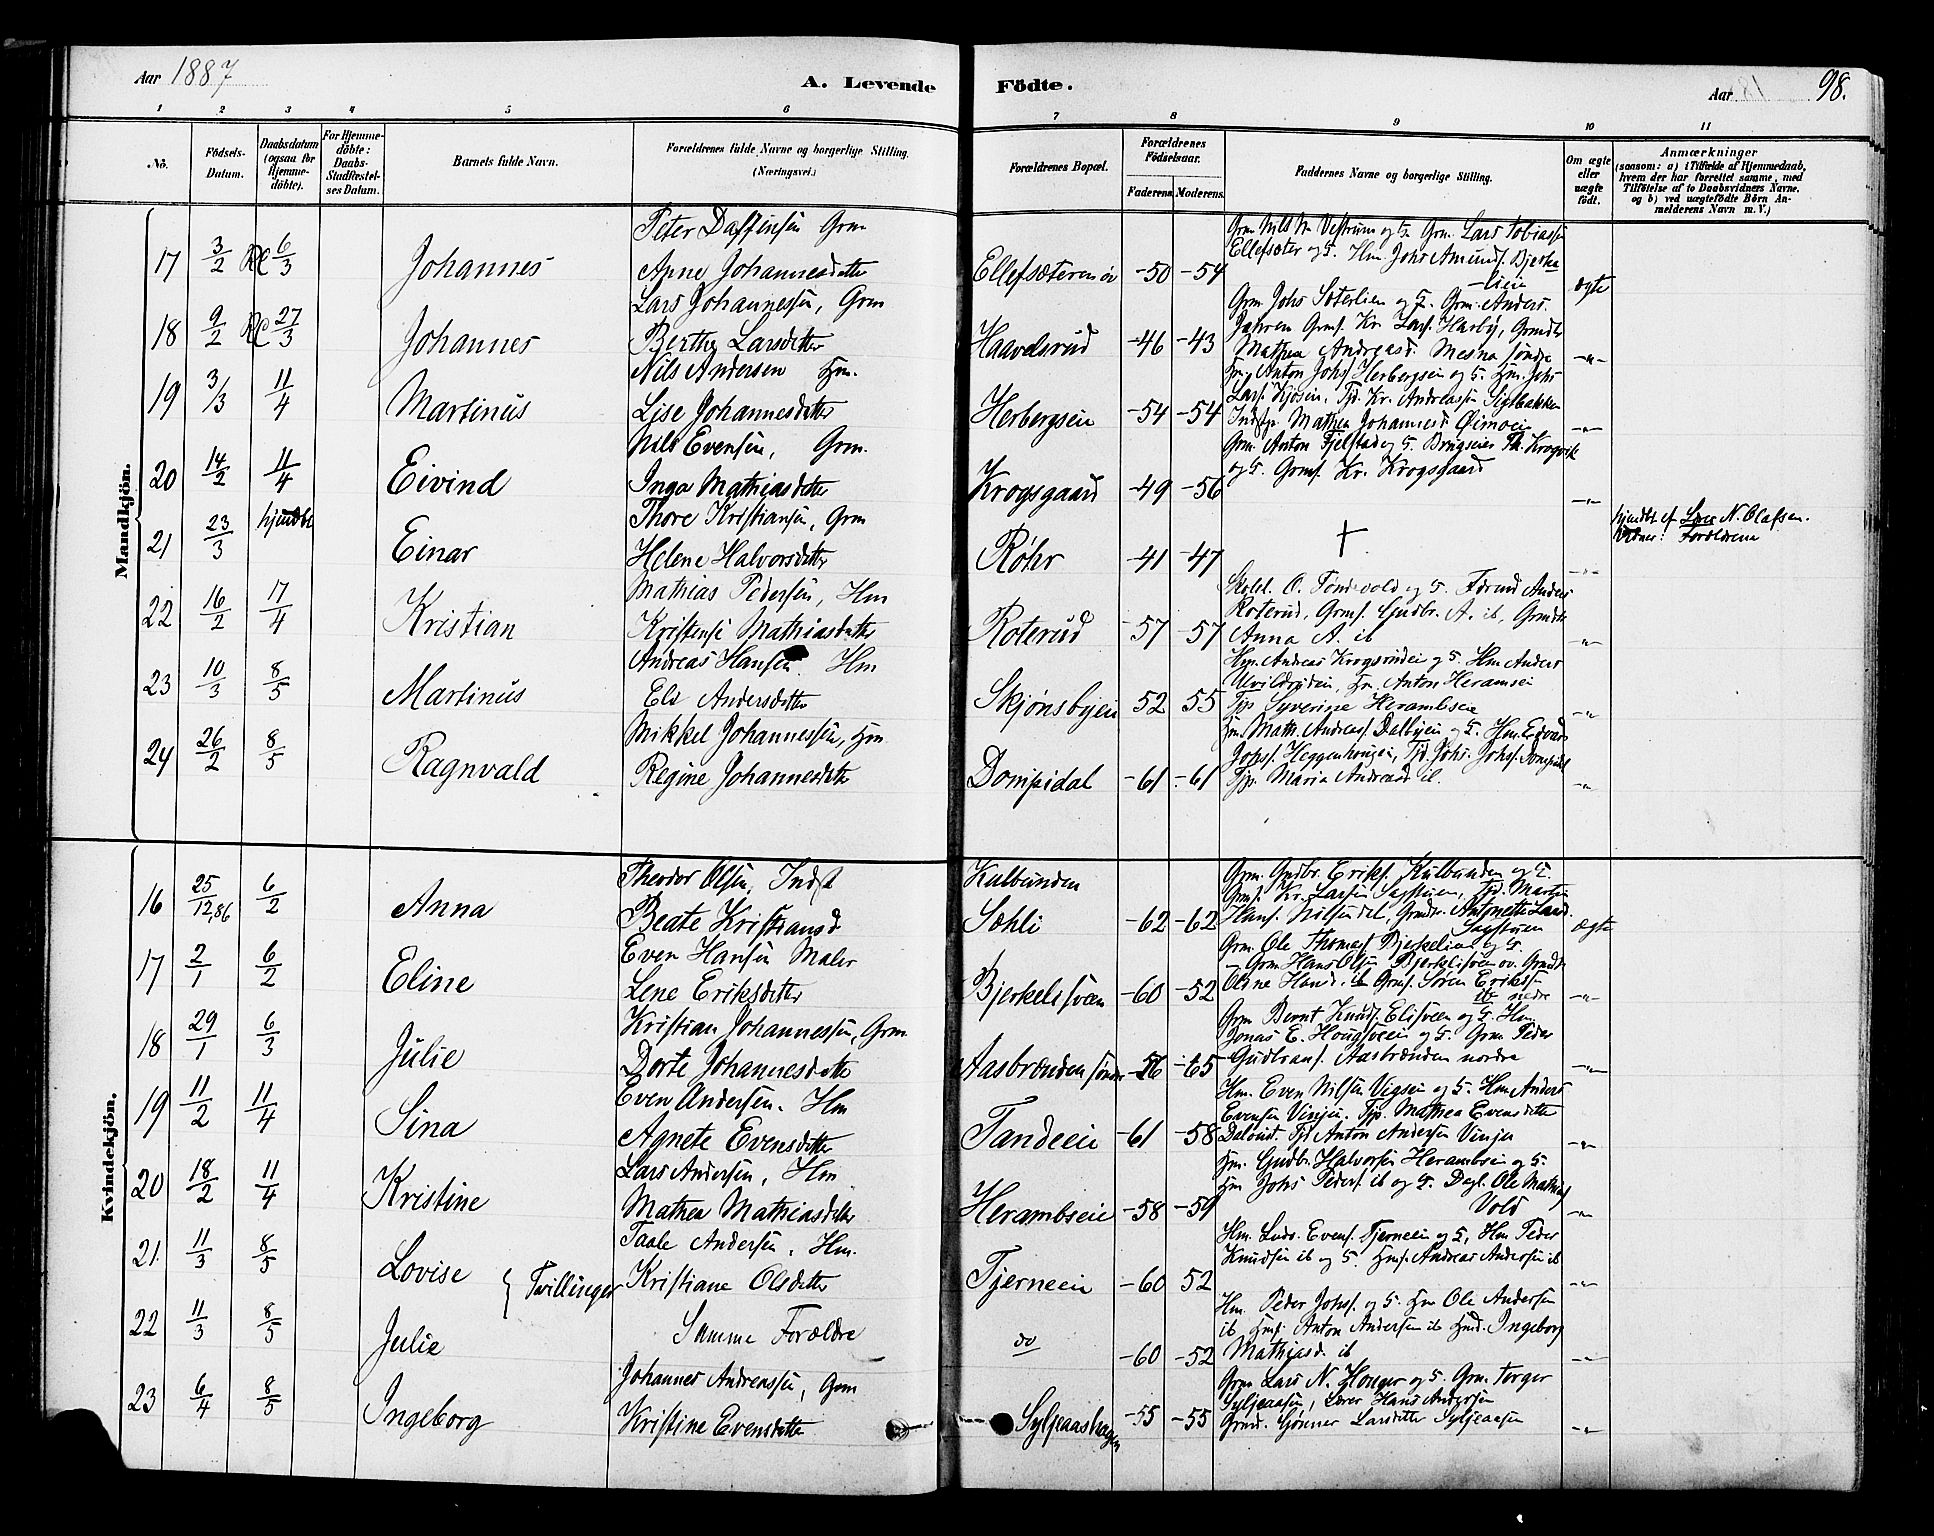 Aar 1887
A. Levende Födte.
Aar 18
98.
1 2 3 4 5 6 7 8 9 10 11
No.
Födsels-Datum.
Daabsdatum (ogsaa for Hjemme-döbte).
For Hjemme-döbte: Daabs-Stadfæstel-ses Datum.
Barnets fulde Navn.
Forældrenes fulde Navne og borgerlige Stilling. (Næringsvei.)
Forældrenes Bopæl.
Forældrenes Födselsaar.
Faderens. Moderens.
Faddernes Navne og borgerlige Stilling.
Om ægte eller uægte födt.
Anmærkninger
(saasom: a) i Tilfælde af Hjemmedaab, hvem der har forrettet samme, med Tilföielse af to Daabsvidners Navne. og b) ved uægtefödte Börn An-melderens Navn m. V.)
Mandkjön.
17 3/2 6/3 Johannes
Peter Daffinsen Grm
Anne Johannesdatter
Ellefsæteren -50 -54
Ellefsæter og 5. Hm. Johs Amunds. Bjerke-
lien
ægte
18 9/2 27/3 Johannes
Lars Johannessen, Grm
Berthe Larsdatter
Haavelsrud -46 -43
Grm Johs Sæterlien og 5. Grm. Anders
Mathea Andreasd. Mesna søndre
-"-
19 3/3 11/4 Martinus
Nils Andersen Hm.
Lise Johannesdatter
Herbergseie -54 -54
Hm. Anton Johs. Herbergseie og 5. Hm. Johs
Lars. Kjosen, Tjd. Kr. Andreassen Sigtbakken
Mathea Johannesd. Øimoen
-"-
20 14/2 11/4 Eivind
Nils Evensen, Grm.
Inga Mathiasdatter
Krogsgaard -49 -56
Grm. Anton Fjelstad og 5. Brugseier Th. Krogvik
og 5. Grms. Kr. Krogsgaard
-"-
21 23/3 hjmdbt Einar
Thore Kristiansen, Grm
Helene Halvorsdatter
Røhr -41 -47
+
-"-
hjmdbt af Lærer N. Olafsen.
Vidner: Forældrene
22 16/2 17/4 Kristian
Mathias Pedersen, Hm
Kristense Mathiasdatter
Roterud -57 -57
Roterud, Grms. Gudbr. A. ib, Grmdtr
Anna A. ib
-"-
23 10/3 8/5 Martinus
Andreas Hansen Hm
Eli Andersdatter
Skjønsbyeie 52 55
Hm. Andreas Krogsrudeie og 5. Hm Anders
Hm. Anton Herambseie
Tjp Syverine Herambseie
-"-
24 26/2 8/5 Ragnvald
Mikkel Johannessen, Hm
Regine Johannesdatter
Dompidal -61 -61
Hm. Math. Andreas. Dalbyeie og 5. Hm. Edvard
Johs. Heggenhougeie, Tjd. Johs. Johs. Dompidal
Tjp. Maria Andreasd ib.
-"-
Kvindekjön.
16 25/12,86 6/2 Anna
Theodor Olsen, Indst
Beate Kristiansd
Kulbunden
Sæhli -62 -62
Grm. Gudbr. Eriks. Kulbunden og 5.
Grms. Kr. Larsen Sagstuen, Tjd. Martin
Sagstuen
ægte
17 2/1 6/2 Eline
Even Hansen Maler
Lene Eriksdatter
Bjerkelisveen -60 -52
Grm. Ole Thomas. Bjerkelien og 5.
- Grm Hans Olsen Bjerkelisveen øv. Grmdtr
Oline Hansd. ib Grms. Søren Eriks.
ib nedre
-"-
18 29/1 6/3 Julie
Kristian Johannessen, Grm
Dorte Johannesdatter
Aasbrænden søndre -56 -65
Grm Bernt Knuds. Elisveen og 5. Hm.
Jonas E. Hougsveen og 5. Grm Peder
Gudbrans. Aasbrænden nordre
-"-
19 11/2 11/4 Sina
Even Andersen. Hm
Agnete Evensdatter
Tandeeie -61 -58
Hm. Even Nilsen Vigseie og 5. Hm Anders
Evensen Vinjeie. Tjp. Mathea Evensdatter
Tjd Anton Andersen Vinju
-"-
20 18/2 11/4 Kristine
Lars Andersen, Hm
Mathea Mathiasdatter
Herambseie -58 -59
Hm. Gudbr. Halvorsen Herambseie og 5.
Hm Johs Peders. ib og 5. Dagl. Ole Mathias
Vold
-"-
21. 11/3 8/5 Lovise } Tvillinger
Taale Andersen, Hm.
Kristiane Olsdatter
Tjerneeie -60 52
Hm. Ludv. Evens. Tjerneeie og 5, Hm Peder
Knudsen ib og 5. Hms. Andreas Andersen ib
-"-
22 11/3 8/5 Julie
Samme Forældre
do -60 -52
Hm. Peder Johs. og 5. Hm Ole Andersen
ib Hms. Anton Andersen ib Hmd. Ingeborg
Mathiasd. ib
-"-
23 6/4 8/5 Ingeborg
Johannes Andreassen, Grm
Kristine Evensdatter
Syljeaashagen -55 -55
Grm Lars N. Honger og 5. Grm Torger
Syljeaasen, Lærer Hans Andersen
Gunner Larsdatter Syljeaasen
-"-